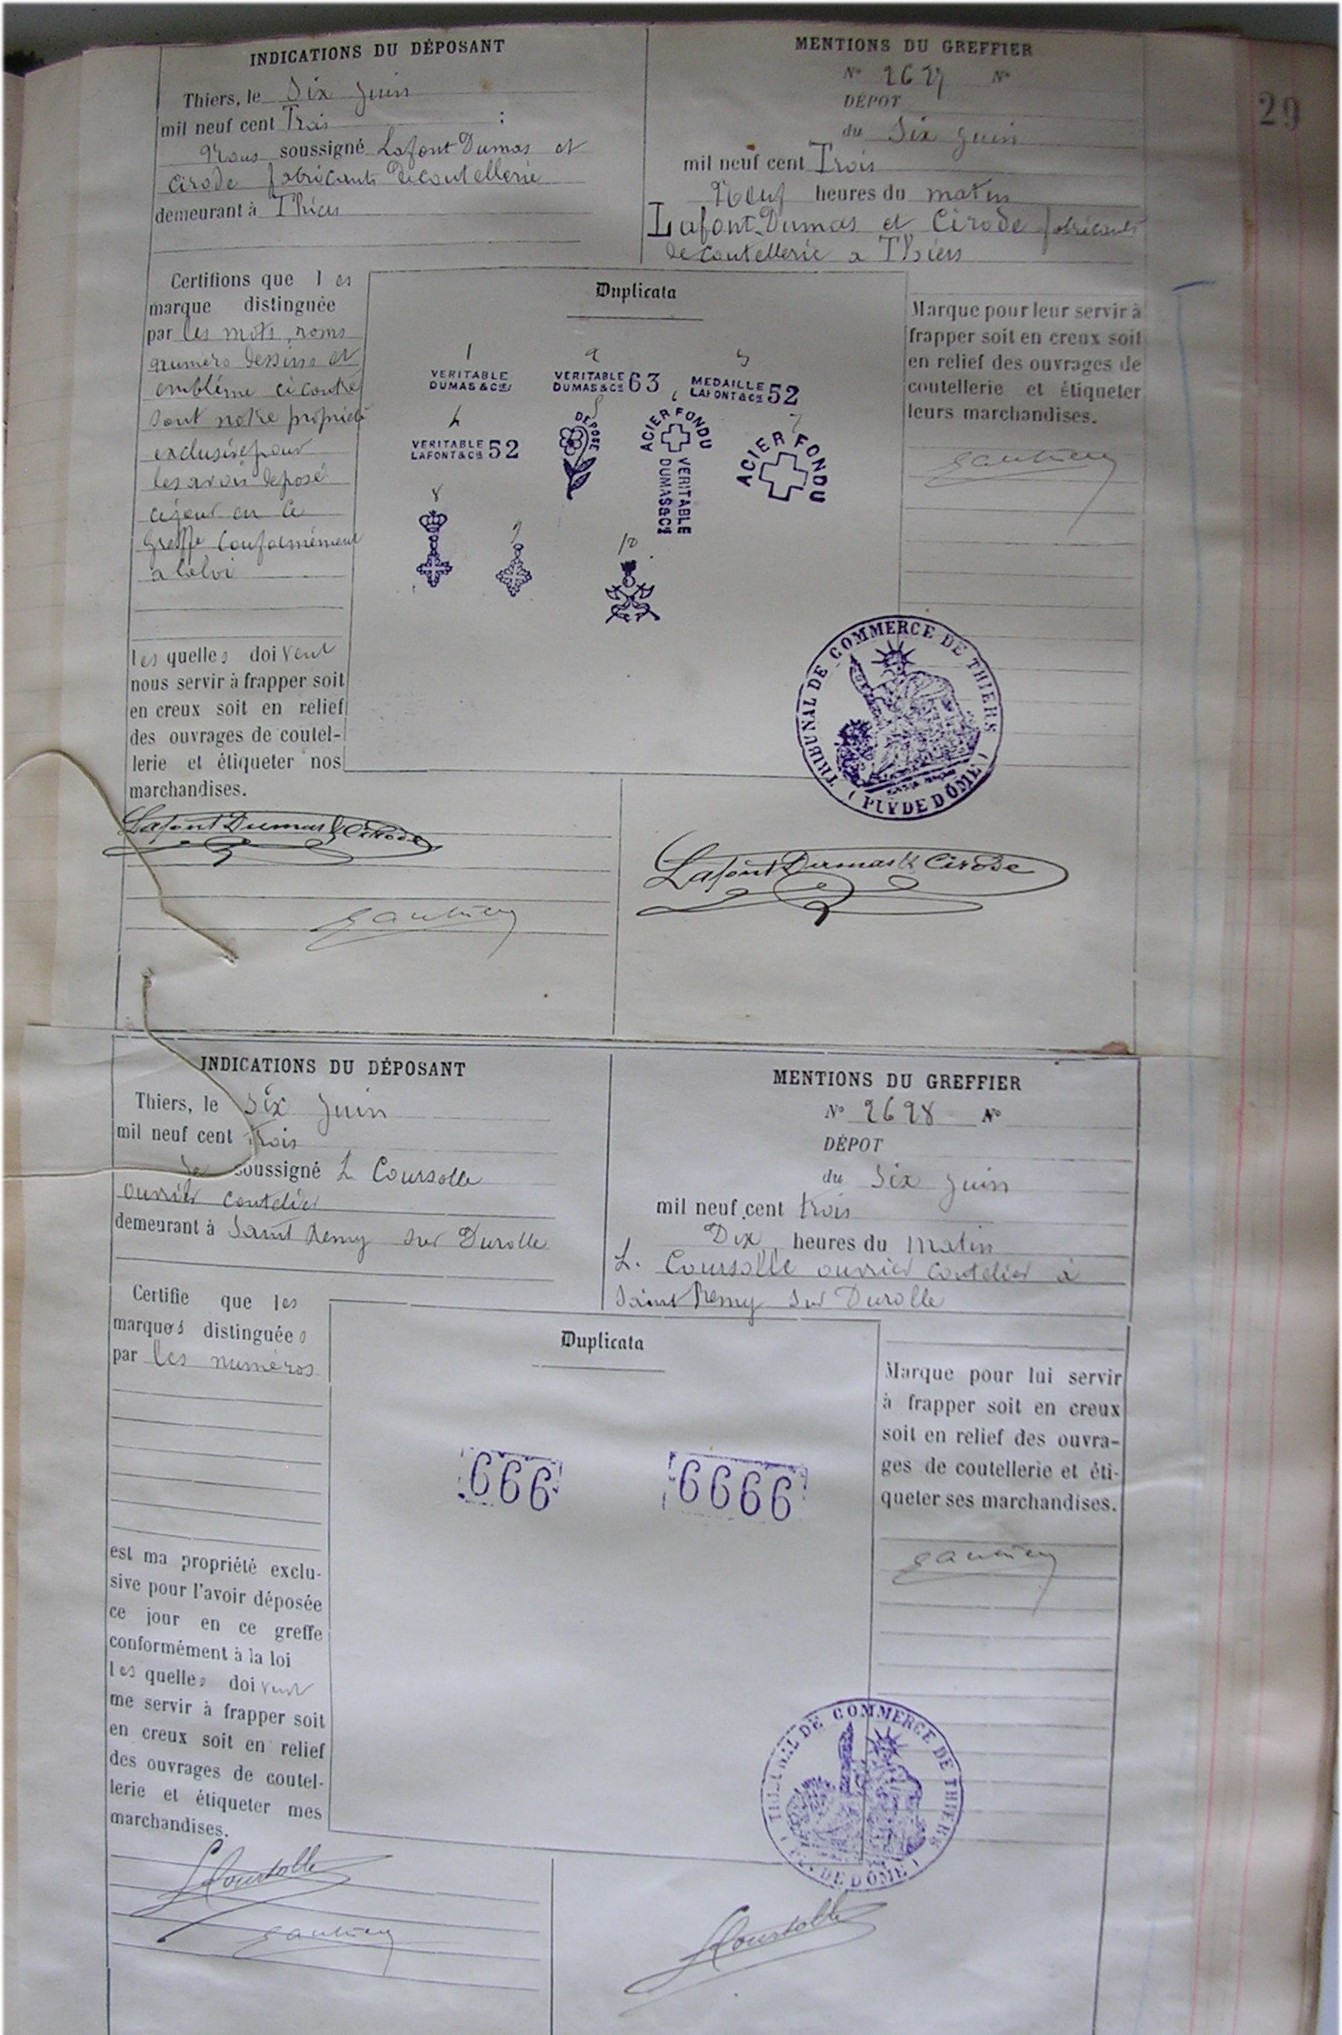 29
INDICATIONS DU DÉPOSANT
Thiers, le Six Juin
mil neuf cent Trois ;
Nous soussigné Lafont Dumas et
Cirode fabricants de coutellerie
demeurant à Thiers
MENTIONS DU GREFFIER
N° 2627 N°
DÉPOT
du Six Juin
mil neuf cent Trois
Neuf heures du matin
Lafont-Dumas et Cirode fabricants
de coutellerie a Thiers
Certifions que les
marque distinguée
par les mots, noms
numéro dessins et
emblême ci contre
sont notre propriété
exclusive pour
les avoir déposé
ce jour en ce
Greffe conformément
a la loi
les quelles doivent
nous servir à frapper soit
en creux soit en relief
des ouvrages de coutel-
lerie et étiqueter nos
marchandises.
Duplicata
1 2 3
VERITABLE
DUMAS & Cie
VERITABLE
DUMAS & Cie 63
MEDAILLE
LAFONT & Cie 52
4 5 6 7
VERITABLE
LAFONT & Cie 52
DEPOSÉ
ACIER FONDU
VERITABLE
DUMAS & Cie
ACIER FONDU
8 9 10
Marque pour leur servir à
frapper soit en creux soit
en relief des ouvrages de
coutellerie et étiqueter
leurs marchandises.
TRIBUNAL DE COMMERCE DE THIERS
( PUY DE DÔME )
Lafont Dumas & Cirode
Lafont Dumas & Cirode
INDICATIONS DU DÉPOSANT
Thiers, le Six Juin
mil neuf cent trois
Je soussigné L Coursolle
ouvrier coutelier
demeurant à Saint Remy sur Durolle
MENTIONS DU GREFFIER
N° 2628 N°
DÉPOT
du Six Juin
mil neuf cent trois
Dix heures du Matin
L. Coursolle ouvrier coutelier à
Saint Remy sur Durolle
Certifie que les
marques distinguées
par les numéros
est ma propriété exclu-
sive pour l'avoir déposée
ce jour en ce greffe
conformément à la loi
les quelles doivent
me servir à frapper soit
en creux soit en relief
des ouvrages de coutel-
lerie et étiqueter mes
marchandises.
Duplicata
666 6666
Marque pour lui servir
à frapper soit en creux
soit en relief des ouvra-
ges de coutellerie et éti-
queter ses marchandises.
TRIBUNAL DE COMMERCE DE THIERS
( PUY DE DÔME )
L Coursolle
L Coursolle